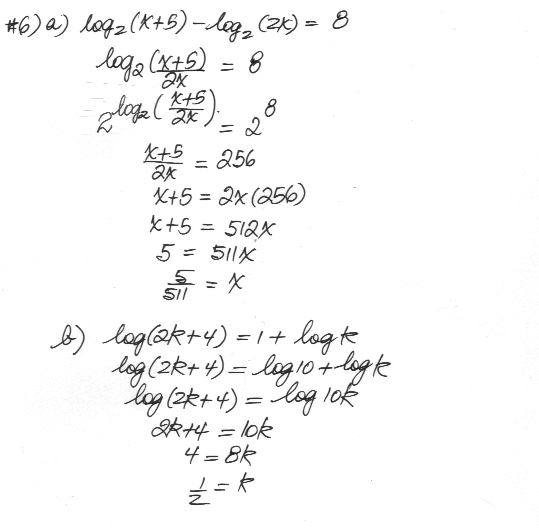 #6) a) log₂(x+5) - log₂(2x) = 8
log₂ (x+5)/2x = 8
2^log₂((x+5)/2x) = 2^8
(x+5)/2x = 256
x+5 = 2x(256)
x+5 = 512x
5 = 511x
5/511 = x
b) log(2k+4) = 1 + log k
log(2k+4) = log10 + log k
log(2k+4) = log 10k
2k+4 = 10k
4 = 8k
1/2 = k